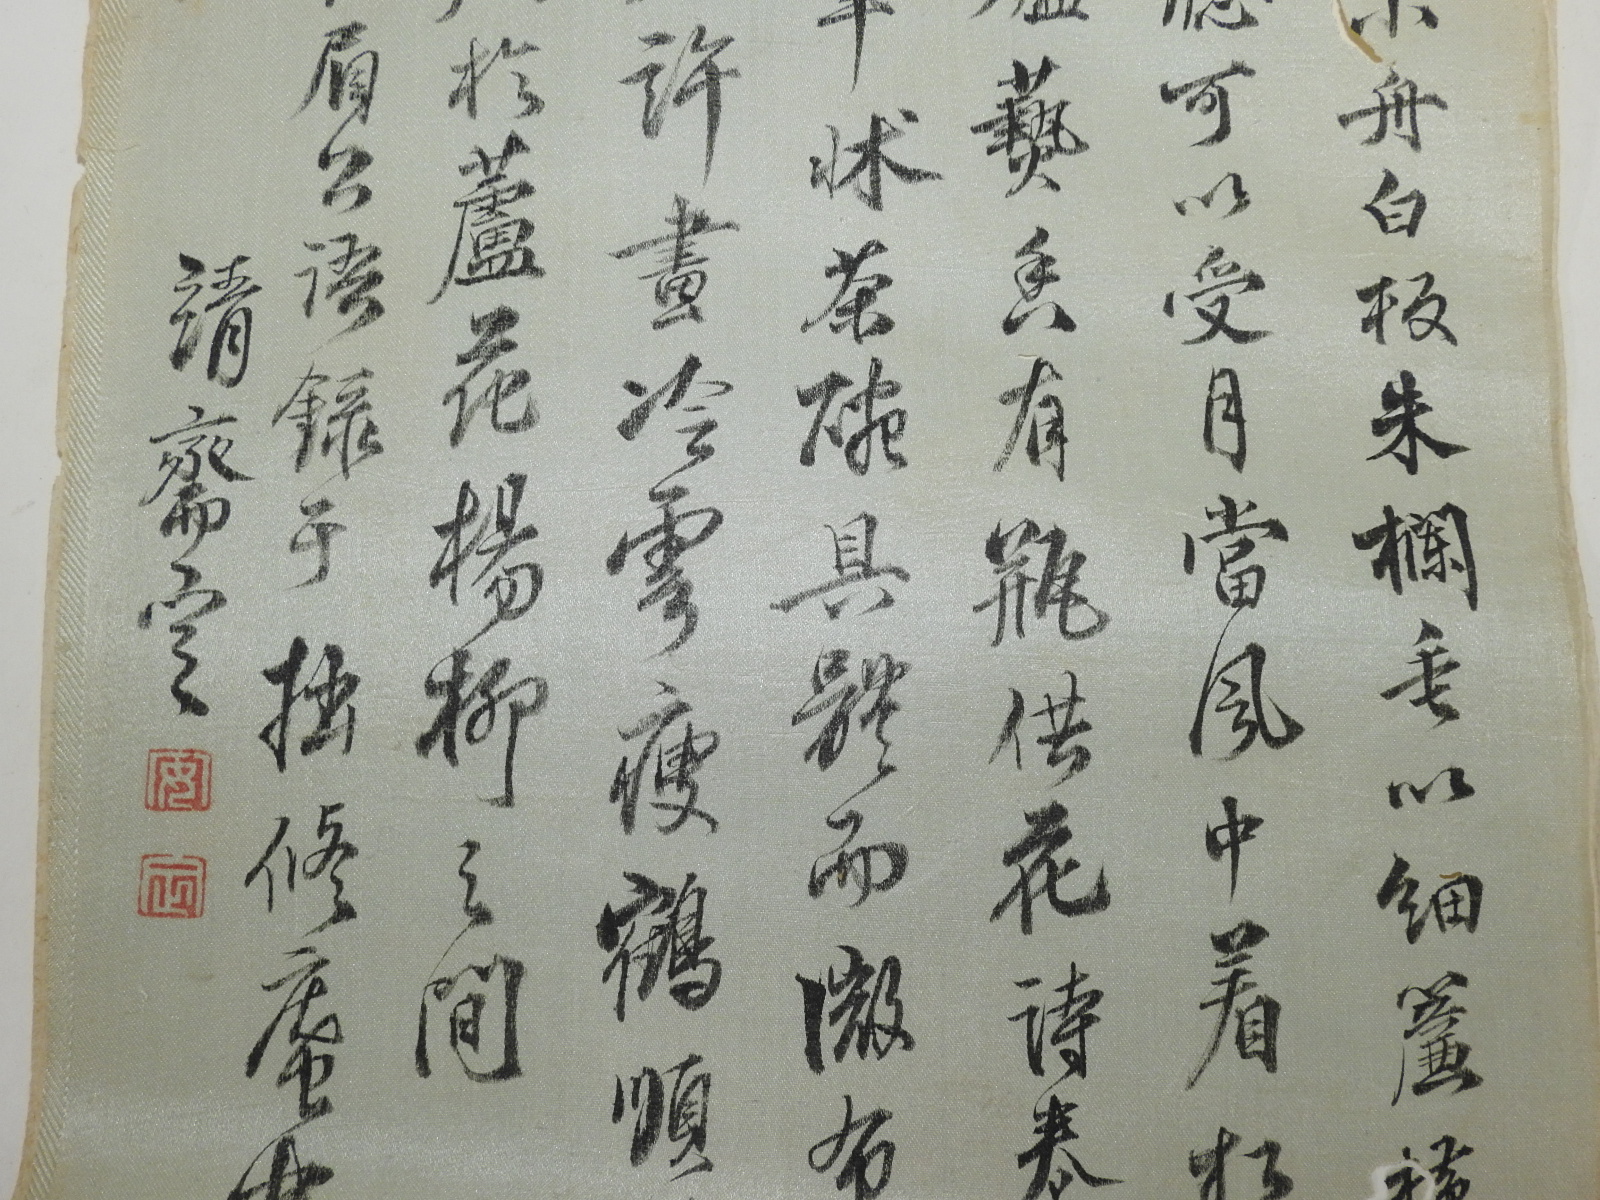 舟白板朱欄垂以細簾
可以受月當風中着
藝香有瓶供花詩
牀茶碗具體而微布
許畫冷雲瘦鶴順
於蘆花楊柳之間
眉公語錄于拙修庵
靖齋定